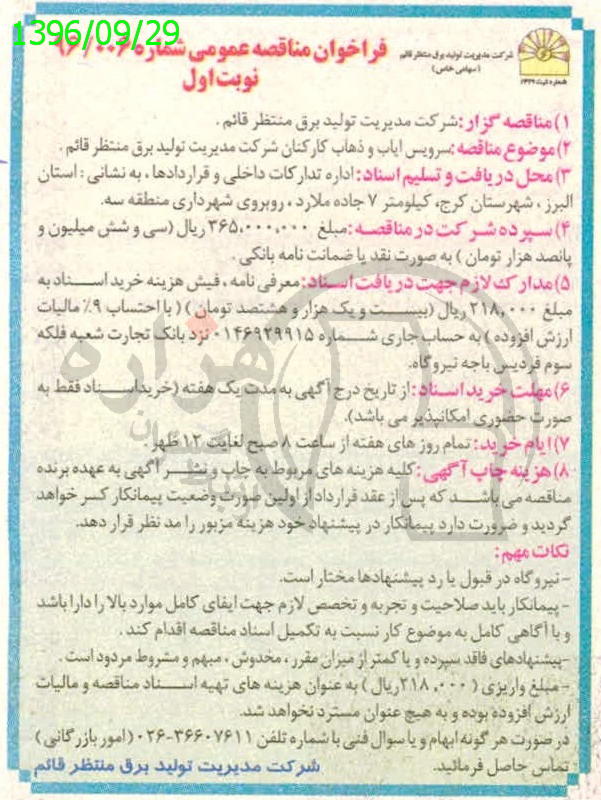 1396/09/29
فراخوان مناقصه عمومی شماره ۹۶/۰۰۶
نوبت اول
شرکت مدیریت تولید برق منتظر قائم
(سهامی خاص)
۱) مناقصه گزار: شرکت مدیریت تولید برق منتظر قائم .
۲) موضوع مناقصه: سرویس ایاب و ذهاب کارکنان شرکت مدیریت تولید برق منتظر قائم .
۳) محل دریافت و تسلیم اسناد: اداره تدارکات داخلی و قراردادها ، به نشانی : استان
البرز ، شهرستان کرج، کیلومتر ۷ جاده ملارد ، روبروی شهرداری منطقه سه.
۴) سپرده شرکت در مناقصه: مبلغ ۳۶۵،۰۰۰،۰۰۰ ریال (سی و شش میلیون و
پانصد هزار تومان ) به صورت نقد یا ضمانت نامه بانکی .
۵) مدارک لازم جهت دریافت اسناد: معرفی نامه ، فیش هزینه خرید اسناد به
مبلغ ۲۱۸،۰۰۰ ریال (بیست و یک هزار و هشتصد تومان ) ( با احتساب ۹٪ مالیات
ارزش افزوده ) به حساب جاری شماره ۰۱۴۶۹۲۹۹۱۵ نزد بانک تجارت شعبه فلکه
سوم فردیس باجه نیروگاه.
۶) مهلت خرید اسناد: از تاریخ درج آگهی به مدت یک هفته (خرید اسناد فقط به
صورت حضوری امکانپذیر می باشد).
۷) ایام خرید: تمام روز های هفته از ساعت ۸ صبح لغایت ۱۲ ظهر .
۸) هزینه چاپ آگهی: کلیه هزینه های مربوط به چاپ و نشر آگهی به عهده برنده
مناقصه می باشد که پس از عقد قرارداد از اولین صورت وضعیت پیمانکار کسر خواهد
گردید و ضرورت دارد پیمانکار در پیشنهاد خود هزینه مزبور را مد نظر قرار دهد.
نکات مهم :
- نیروگاه در قبول یا رد پیشنهادها مختار است.
- پیمانکار باید صلاحیت و تجربه و تخصص لازم جهت ایفای کامل موارد بالا را دارا باشد
و با آگاهی کامل به موضوع کار نسبت به تکمیل اسناد مناقصه اقدام کند .
-پیشنهادهای فاقد سپرده و یا کمتر از میزان مقرر ، مخدوش ، مبهم و مشروط مردود است .
- مبلغ واریزی ( ۲۱۸،۰۰۰ ریال ) به عنوان هزینه های تهیه اسناد مناقصه و مالیات
ارزش افزوده بوده و به هیچ عنوان مسترد نخواهد شد.
در صورت هر گونه ابهام و یا سوال فنی با شماره تلفن ۳۶۶۰۷۶۱۱-۰۲۶ (امور بازرگانی )
تماس حاصل فرمائید.
شرکت مدیریت تولید برق منتظر قائم
هزاره